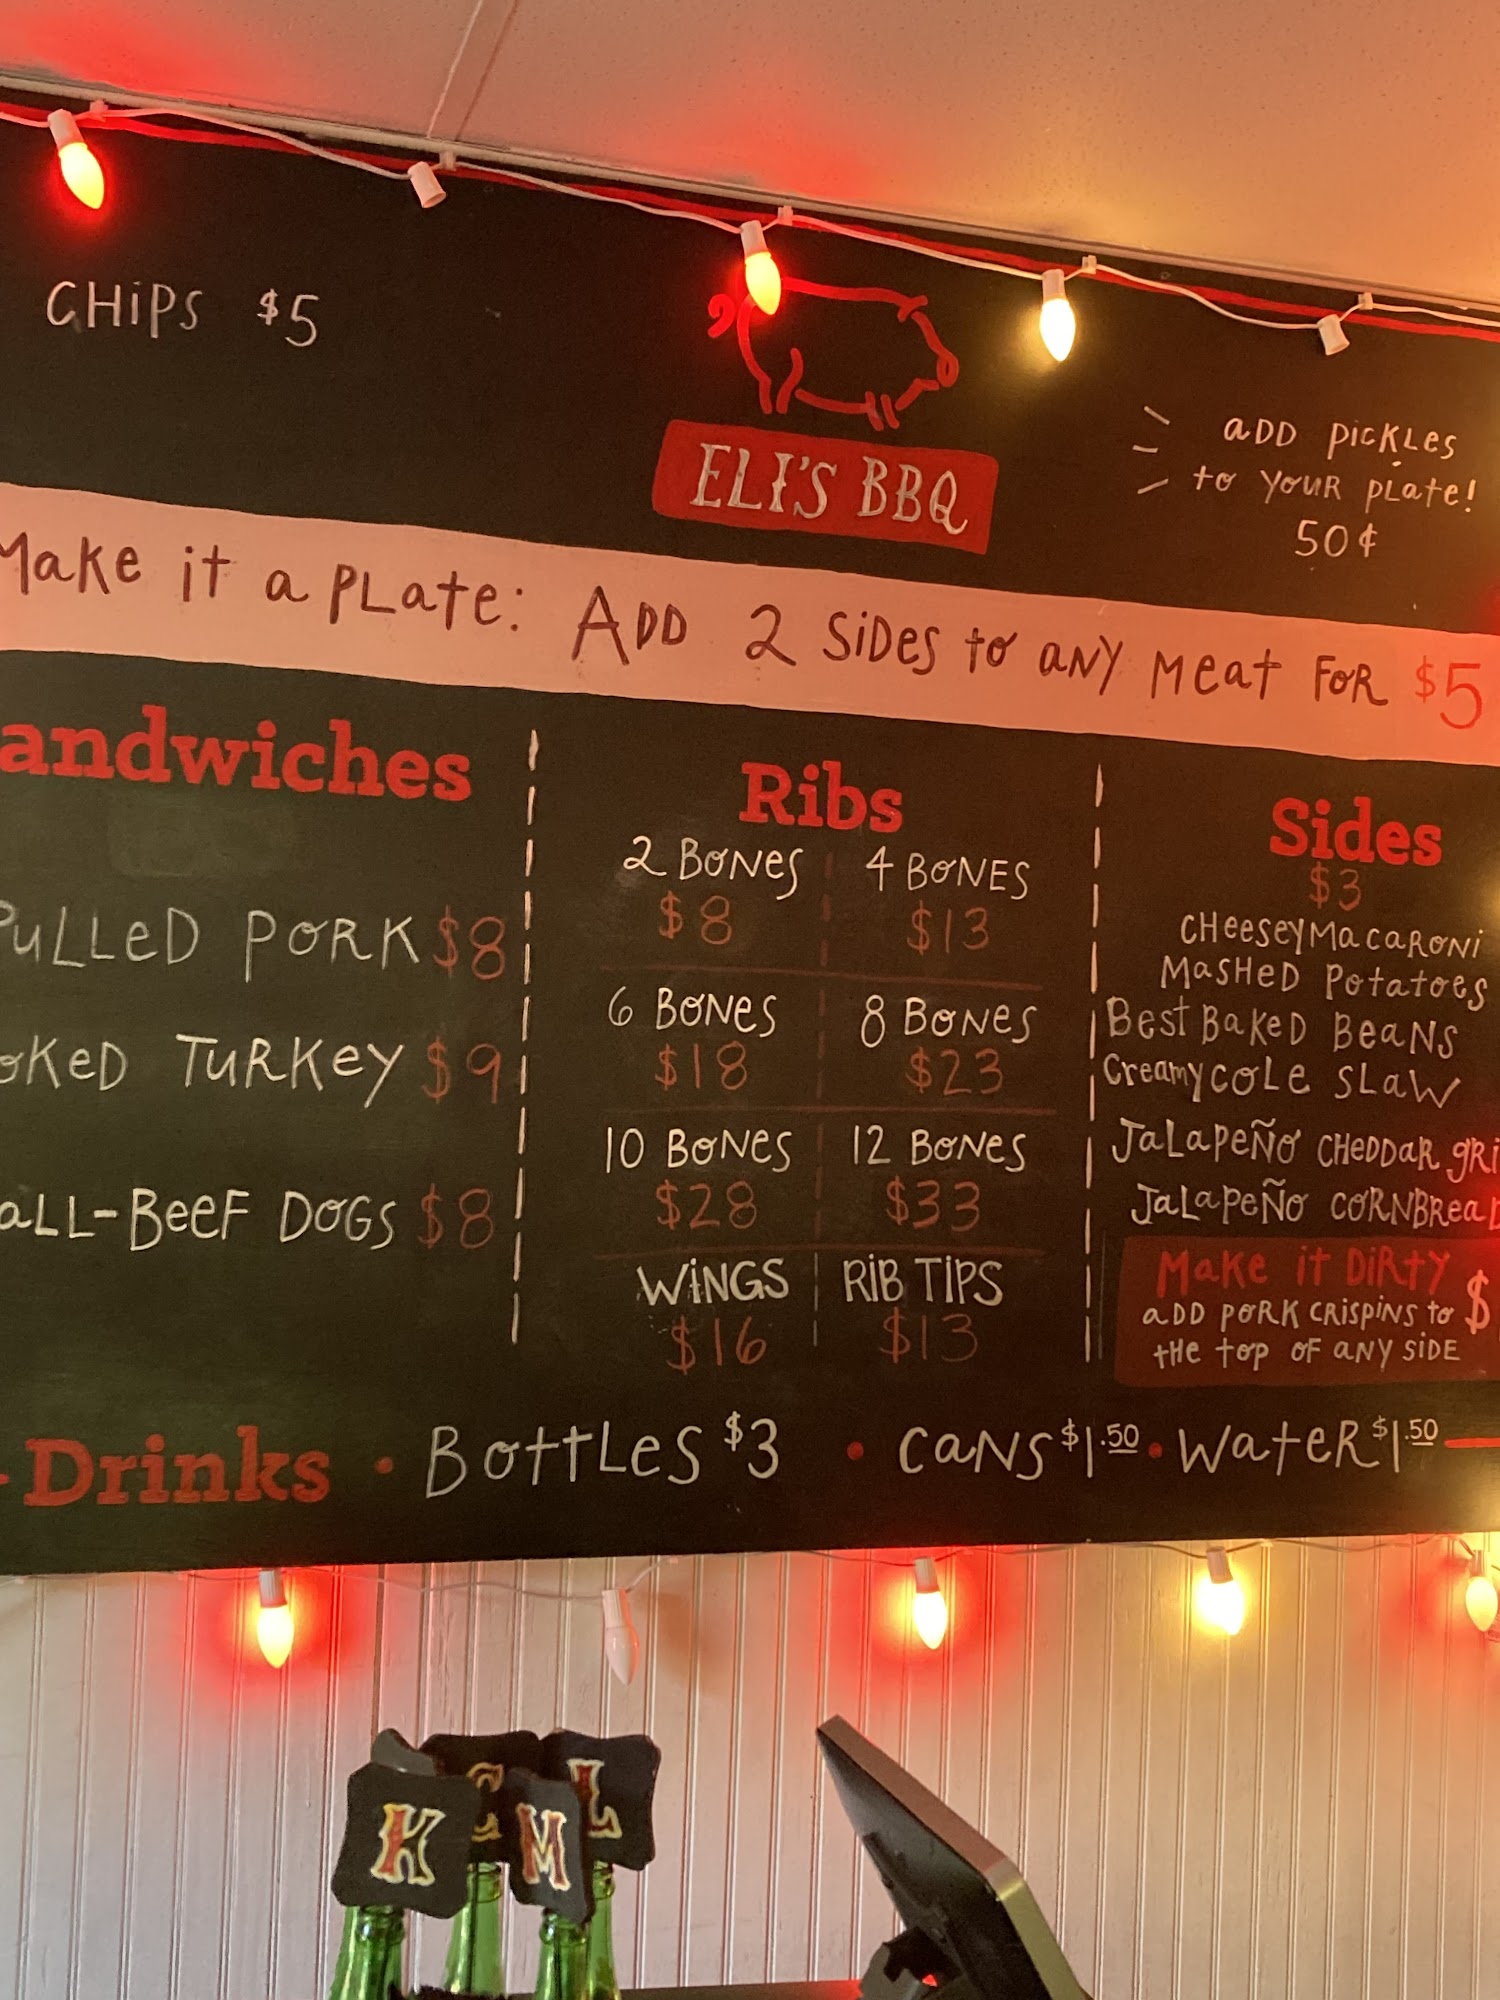 CHiPS $5
ELI'S BBQ
aDD PiCKLes
to YouR PLate!
50¢
Make it a PLate: ADD 2 SiDES to aNY Meat FoR $5
andwiches
PuLLeD PoRK $8
TuRKey $9
aLL-BeeF DOGS $8
Ribs
2 BoNes 4 BONES
$8 $13
6 BoNes 8 BoNes
$18 $23
10 BoNes 12 BoNes
$28 $33
WiNGS RiB TiPS
$16 $13
Sides
$3
CHeesey MaCaRoNi
MasHeD Potatoes
Best BaKeD BeaNS
Creamy COLe SLaW
JaLaPeÑo CHeDDaR
JaLaPeÑo CORNBReaD
Make it DiRty
aDD PoRK CRiSPiNS to $
tHe toP oF aNY SiDE
Drinks • BottLeS $3 • CaNS $1.50 • WateR $1.50
K C M L